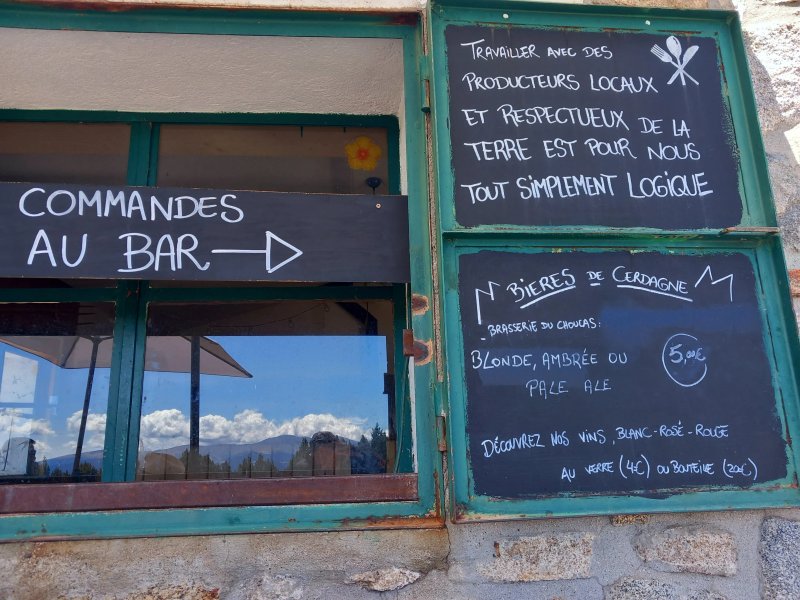 COMMANDES
AU BAR
TRAVAILLER AVEC DES
PRODUCTEURS LOCAUX
ET RESPECTUEUX DE LA
TERRE EST POUR NOUS
TOUT SIMPLEMENT LOGIQUE
BIERES DE CERDAGNE
BRASSERIE DU CHOUCAS:
BLONDE, AMBRÉE OU
PALE ALE
5,00€
DÉCOUVREZ NOS VINS, BLANC-ROSÉ-ROUGE
AU VERRE (4€) OU BOUTEILLE (20€)